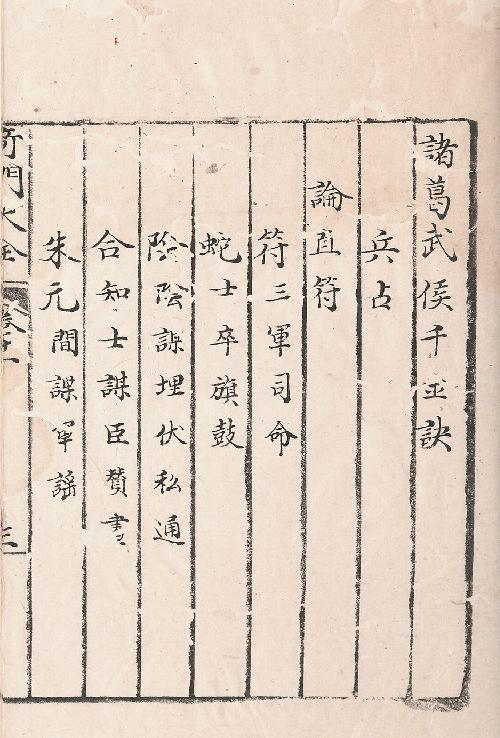 諸葛武侯千𠀋訣
兵占
論直符
符三軍司命
蛇士卒旗鼓
陰陰謀埋伏私通
合知士謀臣賛書
朱元間諜軍謡
奇門大全
卷十一
三